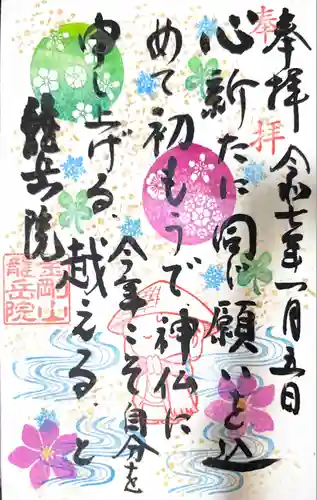 奉拝 令和七年一月五日
心新たに同じ願いと込
めて初もうで.神仏に
申し上げる.今年こそ自分を
越える.と
龍岳院
奉拝
金剛山
龍岳院